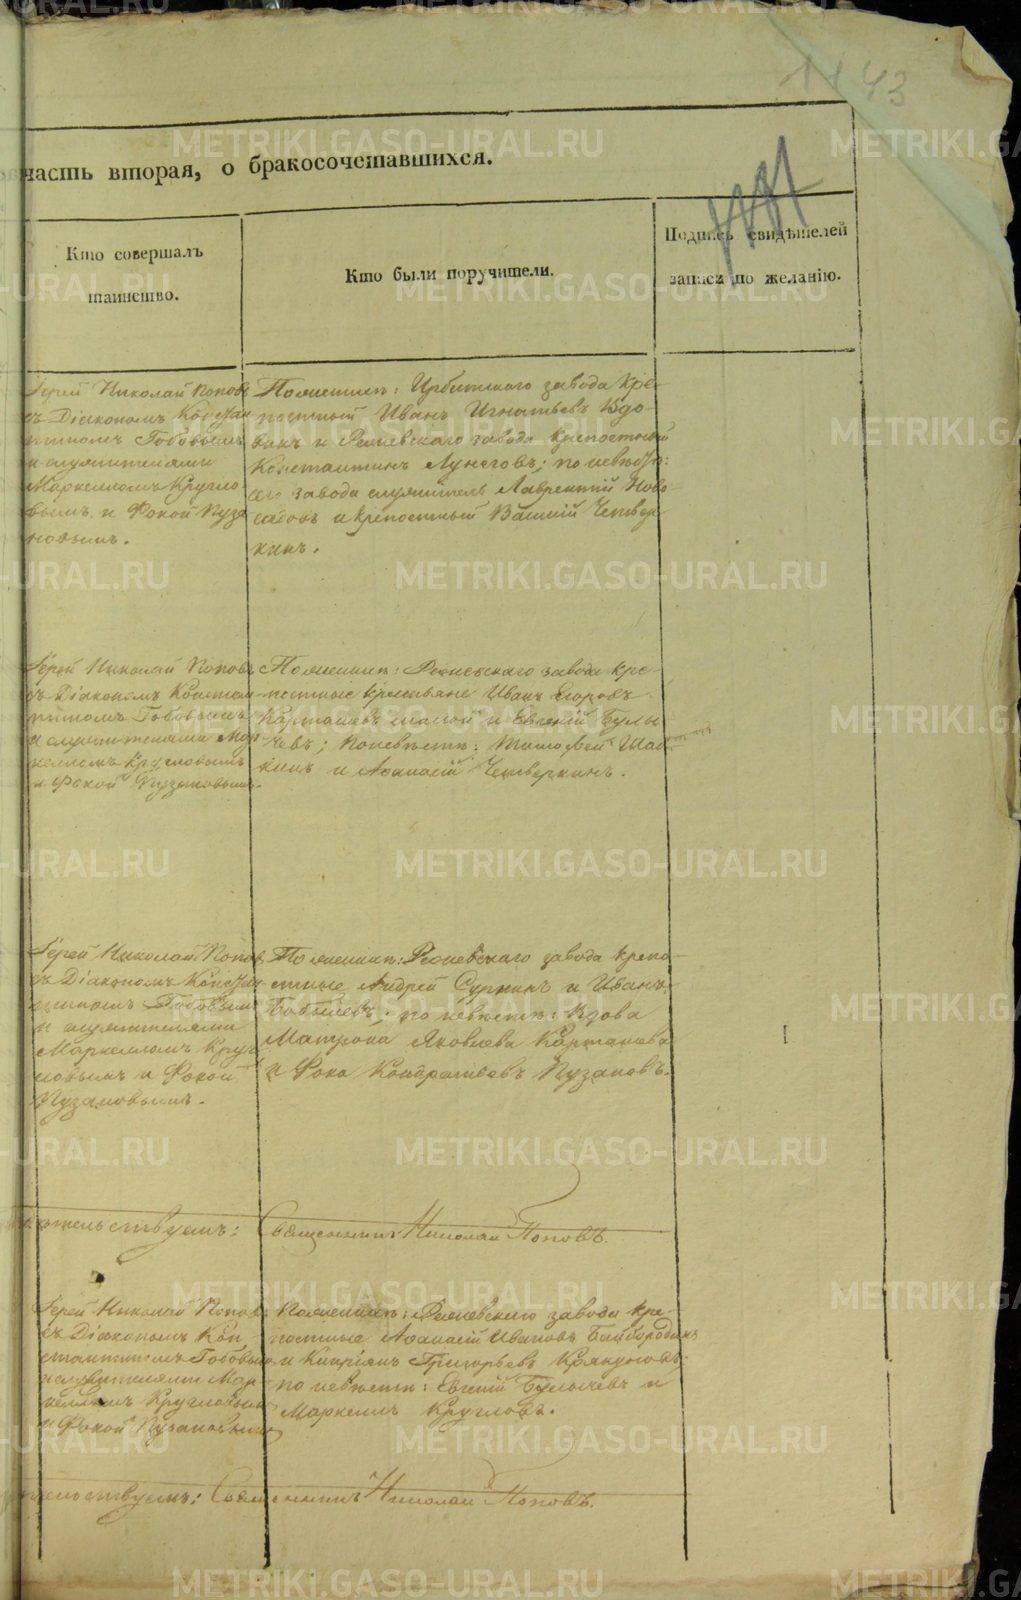 1143
часть вторая, о бракосочетавшихся.
Кто совершалъ
таинство.
Кто были поручители.
Подпись свидѣтелей
записи по желанію.
Іерей Николай Поповъ
съ Діакономъ Констан
тиномъ Гобовымъ
и служителями
Маркелломъ Кругло
вымъ и Фокой Пуза
новымъ.
По женихѣ: Ирбитскаго завода кре-
постный Иванъ Игнатьевъ Вдо-
винъ и Режевскаго завода крепостный
Константинъ Лунеговъ; по невѣстѣ:
сего завода служитель Лаврентій Ново-
селовъ и крепостный Василій Четвер-
кинъ.
Іерей Николай Поповъ
съ Діакономъ Констан
тиномъ Гобовымъ
и служителями Мар
келломъ Кругловымъ
и Фокой Пузановымъ.
По женихѣ: Режевскаго завода кре-
постные крестьяне Иванъ Егоровъ
Карташевъ и Евгеній Булы
чевъ; по невѣстѣ: Тимофей
и Афанасій Четверкинъ.
Іерей Николай Поповъ
съ Діакономъ Констан
тиномъ Гобовымъ
и служителями
Маркелломъ Круг
ловымъ и Фокой
Пузановымъ.
По женихѣ: Режевскаго завода крепо-
стные Андрей Суркинъ и Иванъ
Бобылевъ; по невѣстѣ: Вдова
Матрона Яковлева Карташева
и Фока Кондратьевъ Пузановъ.
тельствуемъ: Священникъ Николай Поповъ.
Іерей Николай Попов
съ Діакономъ Кон-
стантиномъ Гобовым
и служителями Мар
келломъ Кругловым
и Фокой Пузановымъ
По женихѣ: Режевскаго завода кре-
постные Афанасій Ивановъ Байбородинъ
и Кипріянъ Григорьевъ
по невѣстѣ: Евгеній Булычевъ и
Маркеллъ Кругловъ.
тельствуемъ: Священникъ Николай Поповъ.
METRIKI.GASO-URAL.RU